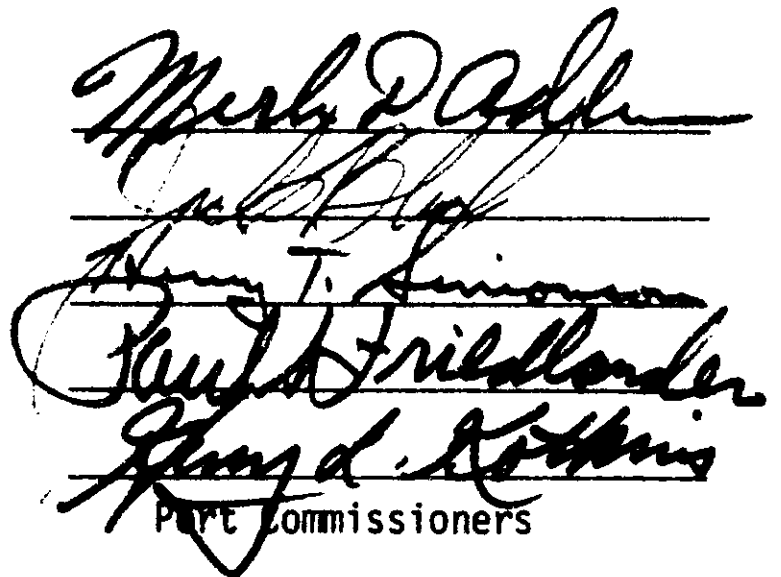 Merle D Adlum
Jack Block
Henry T. Simonson
Paul S Friedlander
Henry L. Kotkins
Port Commissioners